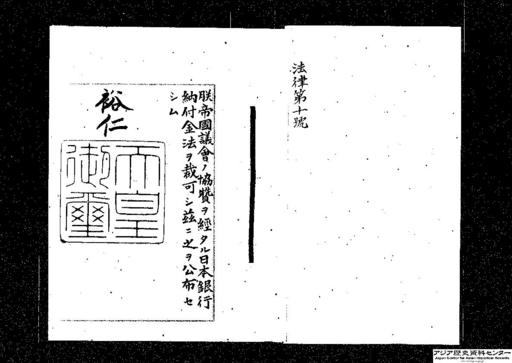 法律第十號
朕帝國議會ノ協贊ヲ經タル日本銀行
納付金法ヲ裁可シ茲ニ之ヲ公布セ
シム
裕仁
天皇
御璽
アジア歴史資料センター
Japan Center for Asian Historical Records